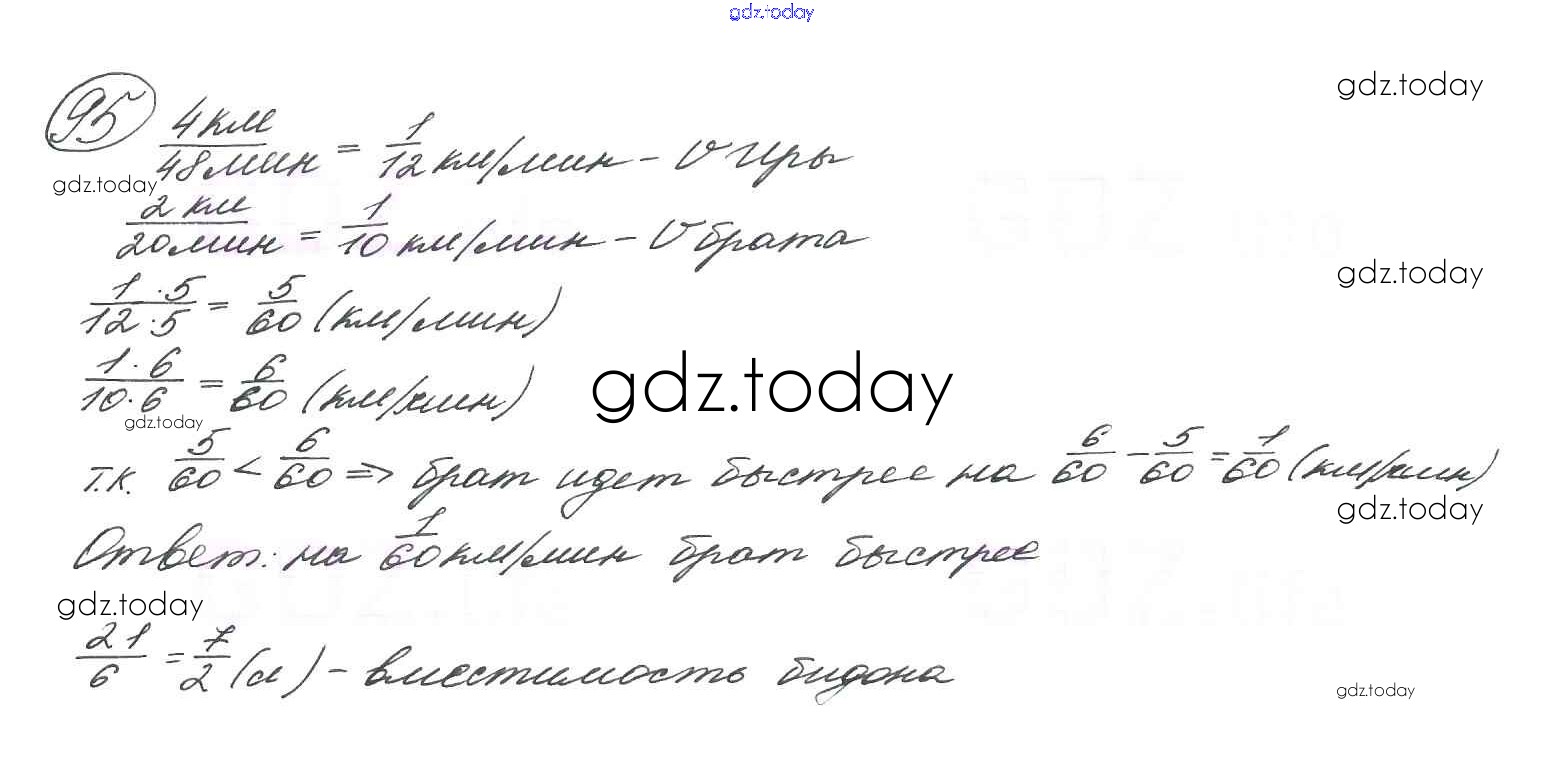 gdz.today
gdz.today
95 4км/48мин = 1/12 км/мин – V Иры
gdz.today
2 км/20мин = 1/10 км/мин – V брата
gdz.today
1·5/12·5 = 5/60 (км/мин)
1·6/10·6 = 6/60 (км/мин)
gdz.today
gdz.today
т.к. 5/60 < 6/60 => брат идет быстрее на 6/60 – 5/60 = 1/60 (км/мин)
gdz.today
Ответ: на 1/60 км/мин брат быстрее
gdz.today
21/6 = 7/2 (л) – вместимость бидона
gdz.today